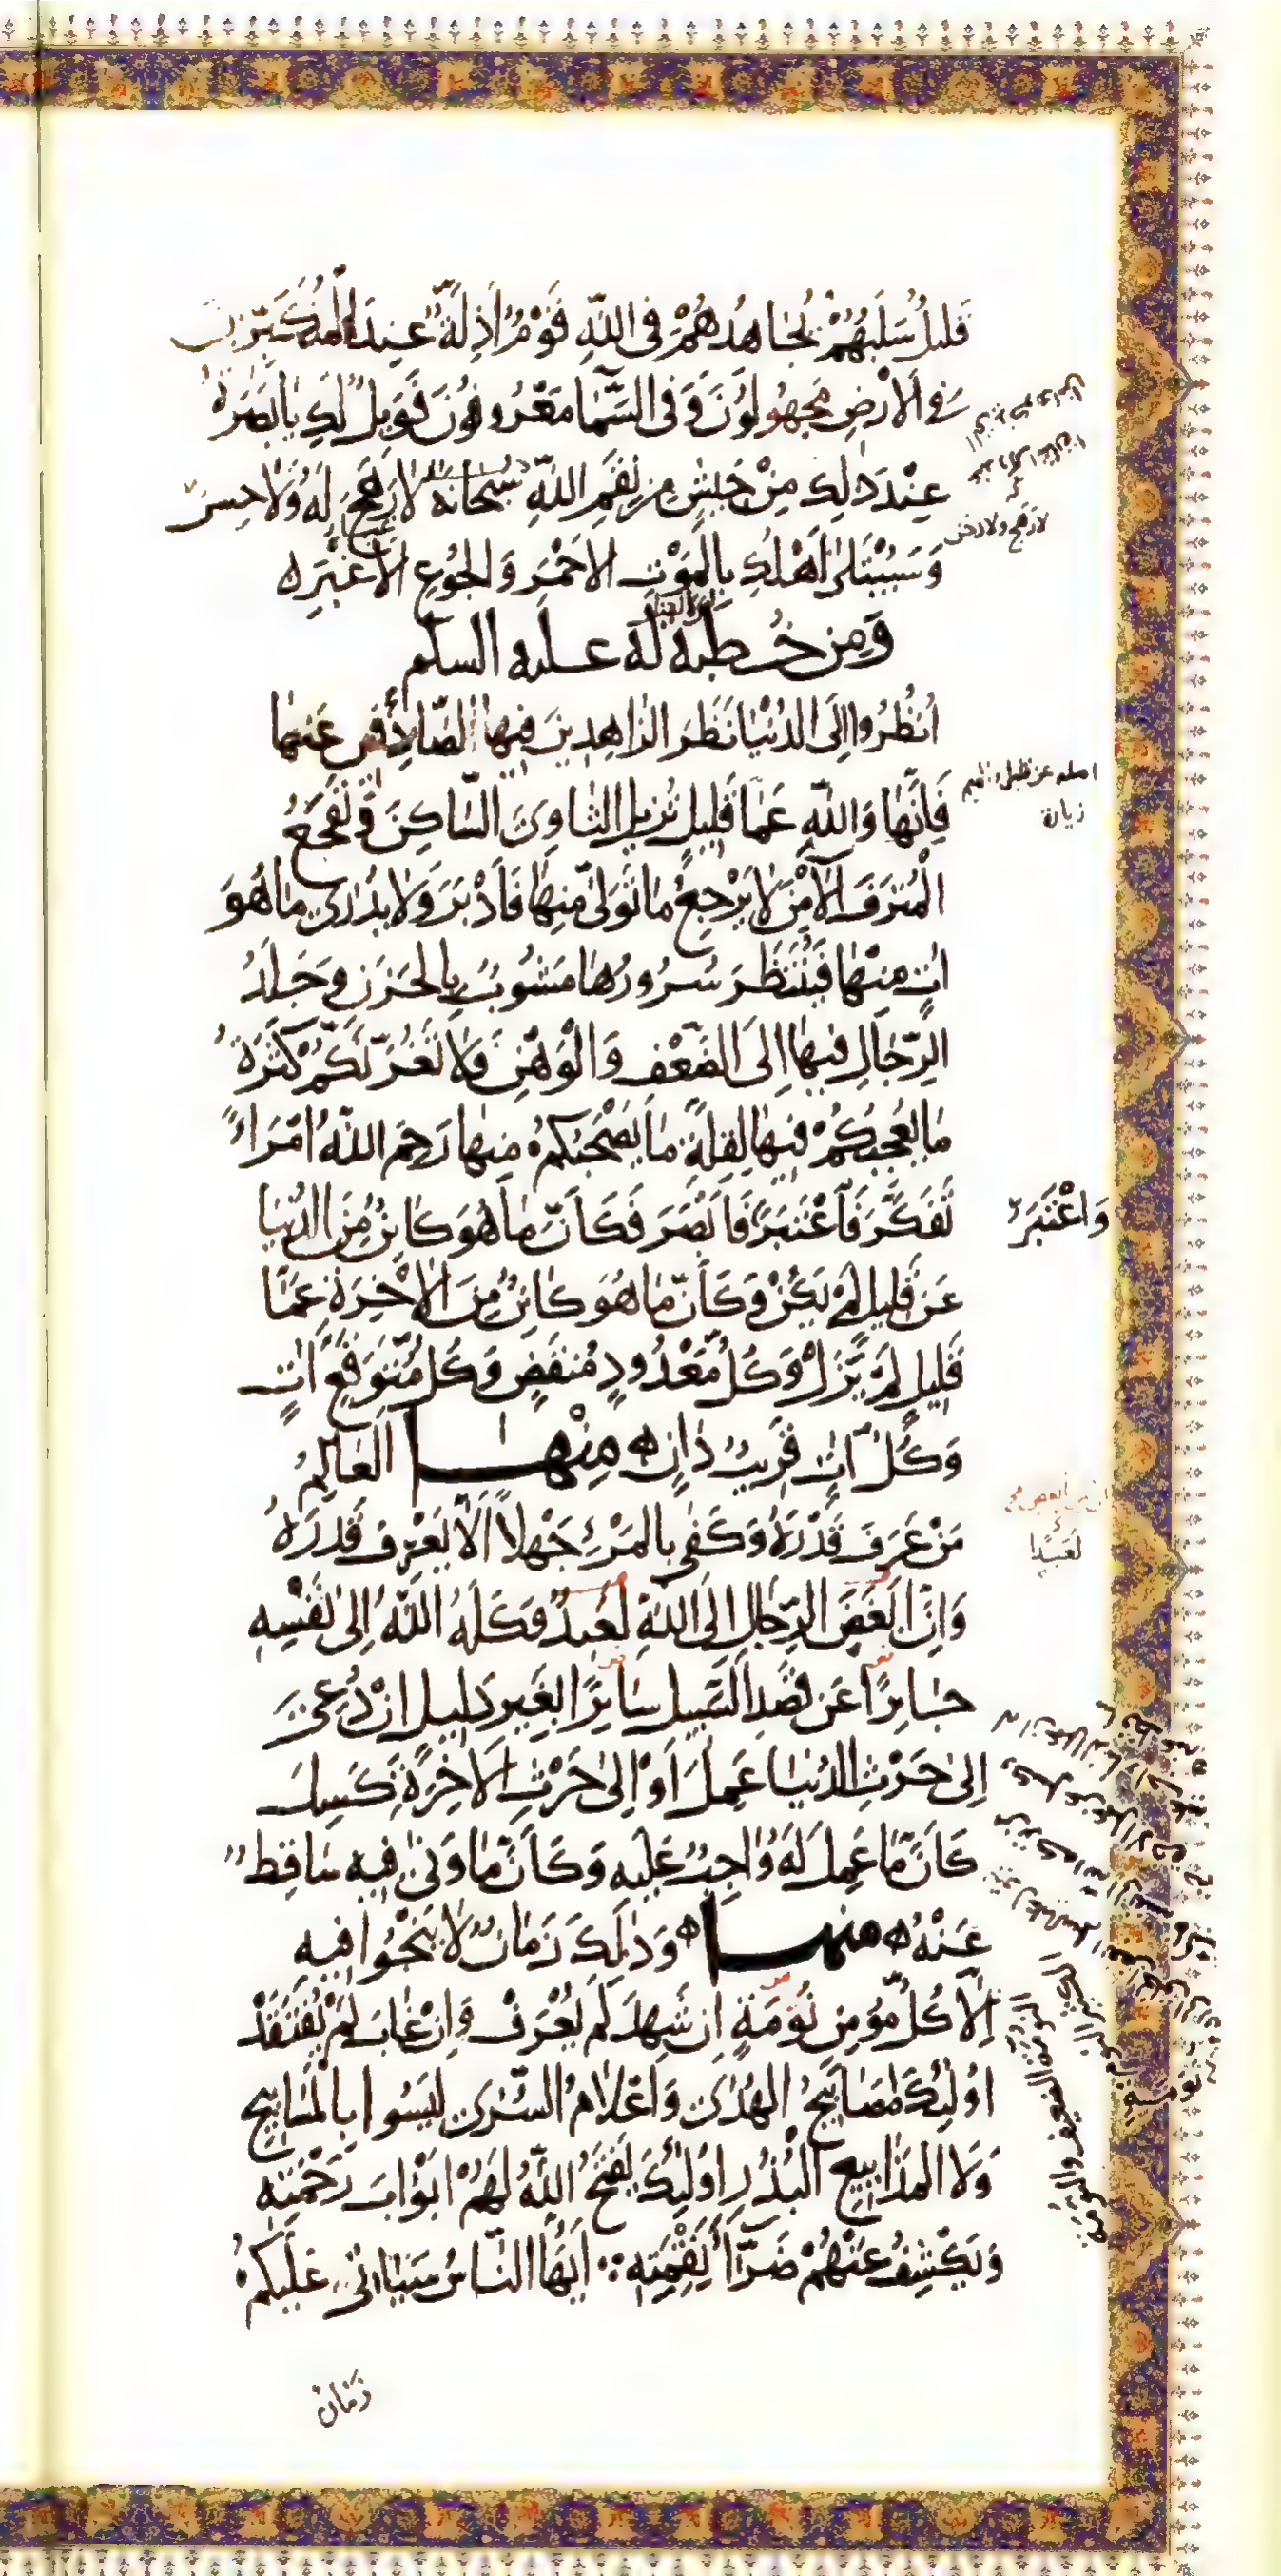 قَلِيلٌ سَلَبُهُمْ يُجَاهِدُهُمْ فِي اللَّهِ قَوْمٌ أَذِلَّةٌ عِنْدَ الْمُتَكَبِّرِينَ
فِي الْأَرْضِ مَجْهُولُونَ وَفِي السَّمَاءِ مَعْرُوفُونَ فَوَيْلٌ لَكِ يَا بَصْرَةُ
عِنْدَ ذَلِكِ مِنْ جَيْشٍ مِنْ نِقَمِ اللَّهِ سُبْحَانَهُ لَا رَهَجَ لَهُ وَلَا حِسَّ
وَسَيُبْتَلَى أَهْلُكِ بِالْمَوْتِ الْأَحْمَرِ وَالْجُوعِ الْأَغْبَرِ ه
وَمِنْ خُطْبَةٍ لَهُ عليه السلم
اُنْظُرُوا إِلَى الدُّنْيَا نَظَرَ الزَّاهِدِينَ فِيهَا الصَّادِفِينَ عَنْهَا
فَإِنَّهَا وَاللَّهِ عَمَّا قَلِيلٍ تُزِيلُ الثَّاوِيَ السَّاكِنَ وَتَفْجَعُ
الْمُتْرَفَ الْآمِنَ لَا يَرْجِعُ مَا تَوَلَّى مِنْهَا فَأَدْبَرَ وَلَا يُدْرَى مَا هُوَ
اتٍ مِنْهَا فَيُنْتَظَرَ سُرُورُهَا مَشُوبٌ بِالْحَزَنِ وَجَلَدُ
الرِّجَالِ فِيهَا إِلَى الضَّعْفِ وَالْوَهْنِ فَلَا تَغُرَّنَّكُمْ كَثْرَةُ
مَا يُعْجِبُكُمْ فِيهَا لِقِلَّةِ مَا يَصْحَبُكُمْ مِنْهَا رَحِمَ اللَّهُ امْرَاءً
تَفَكَّرَ فَاعْتَبَرَ فَأَبْصَرَ فَكَأَنَّ مَا هُوَ كَائِنٌ مِنَ الدُّنْيَا
وَاعْتَبَرَ
عَنْ قَلِيلٍ لَمْ يَكُنْ وَكَأَنَّ مَا هُوَ كَائِنٌ مِنَ الْآخِرَةِ عَمَّا
قَلِيلٍ لَمْ يَزَلْ وَكُلُّ مَعْدُودٍ مُنْقَضٍ وَكُلُّ مُتَوَقَّعٍ آتٍ
وَكُلُّ آتٍ قَرِيبٌ دَانٍ ه مِنْهَا الْعَالِمُ
مَنْ عَرَفَ قَدْرَهُ وَكَفَى بِالْمَرْءِ جَهْلًا أَلَّا يَعْرِفَ قَدْرَهُ
لَعَبْدًا
وَإِنَّ أَبْغَضَ الرِّجَالِ إِلَى اللَّهِ لَعَبْدٌ وَكَلَهُ اللَّهُ إِلَى نَفْسِهِ
جَائِرًا عَنْ قَصْدِ السَّبِيلِ سَائِرًا بِغَيْرِ دَلِيلٍ إِنْ دُعِيَ
إِلَى حَرْثِ الدُّنْيَا عَمِلَ أَوْ إِلَى حَرْثِ الْآخِرَةِ كَسِلَ
كَأَنَّ مَا عَمِلَ لَهُ وَاجِبٌ عَلَيْهِ وَكَأَنَّ مَا وَنَى فِيهِ سَاقِطٌ
عَنْهُ ه منها ه وَذَلِكَ زَمَانٌ لَا يَنْجُوا فِيهِ
إِلَّا كُلُّ مُؤْمِنٍ نُوَمَةٍ إِنْ شَهِدَ لَمْ يُعْرَفْ وَإِنْ غَابَ لَمْ يُفْتَقَدْ
أُولَئِكَ مَصَابِيحُ الْهُدَى وَأَعْلَامُ السُّرَى لَيْسُوا بِالْمَسَابِيحِ
وَلَا الْمَذَايِيعِ الْبُذُرِ أُولَئِكَ يَفْتَحُ اللَّهُ لَهُمْ أَبْوَابَ رَحْمَتِهِ
وَيَكْشِفُ عَنْهُمْ ضَرَّاءَ نِقْمَتِهِ أَيُّهَا النَّاسُ سَيَأْتِي عَلَيْكُمْ
زَمَانٌ